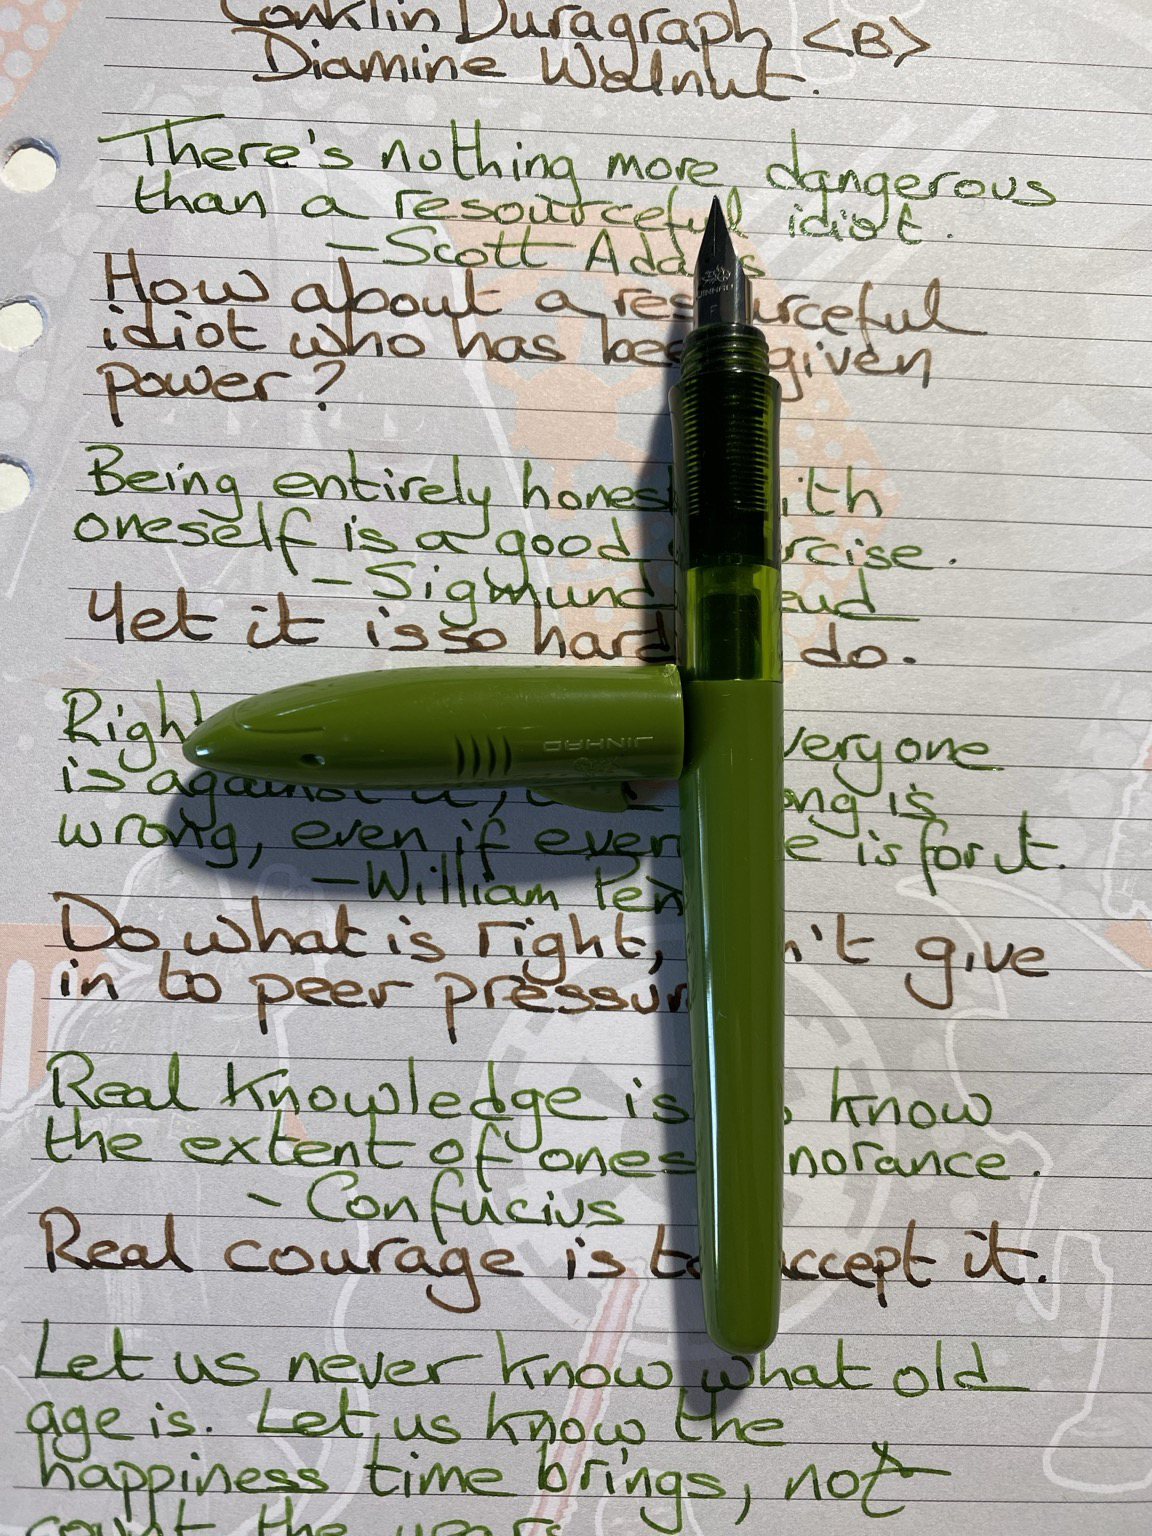 Conklin Duragraph <B>
Diamine Walnut.
There's nothing more dangerous
than a resourceful idiot.
- Scott Adams
How about a resourceful
idiot who has been given
power?
Being entirely honest with
oneself is a good exercise.
- Sigmund Freud
Yet it is so hard to do.
Right everyone
is against it, wrong is
wrong, even if everyone is for it.
- William Penn
Do what is right, don't give
in to peer pressure
Real knowledge is to know
the extent of ones ignorance.
- Confucius
Real courage is to accept it.
Let us never know what old
age is. Let us know the
happiness time brings, not
count the years
JINHAO
JINHAO